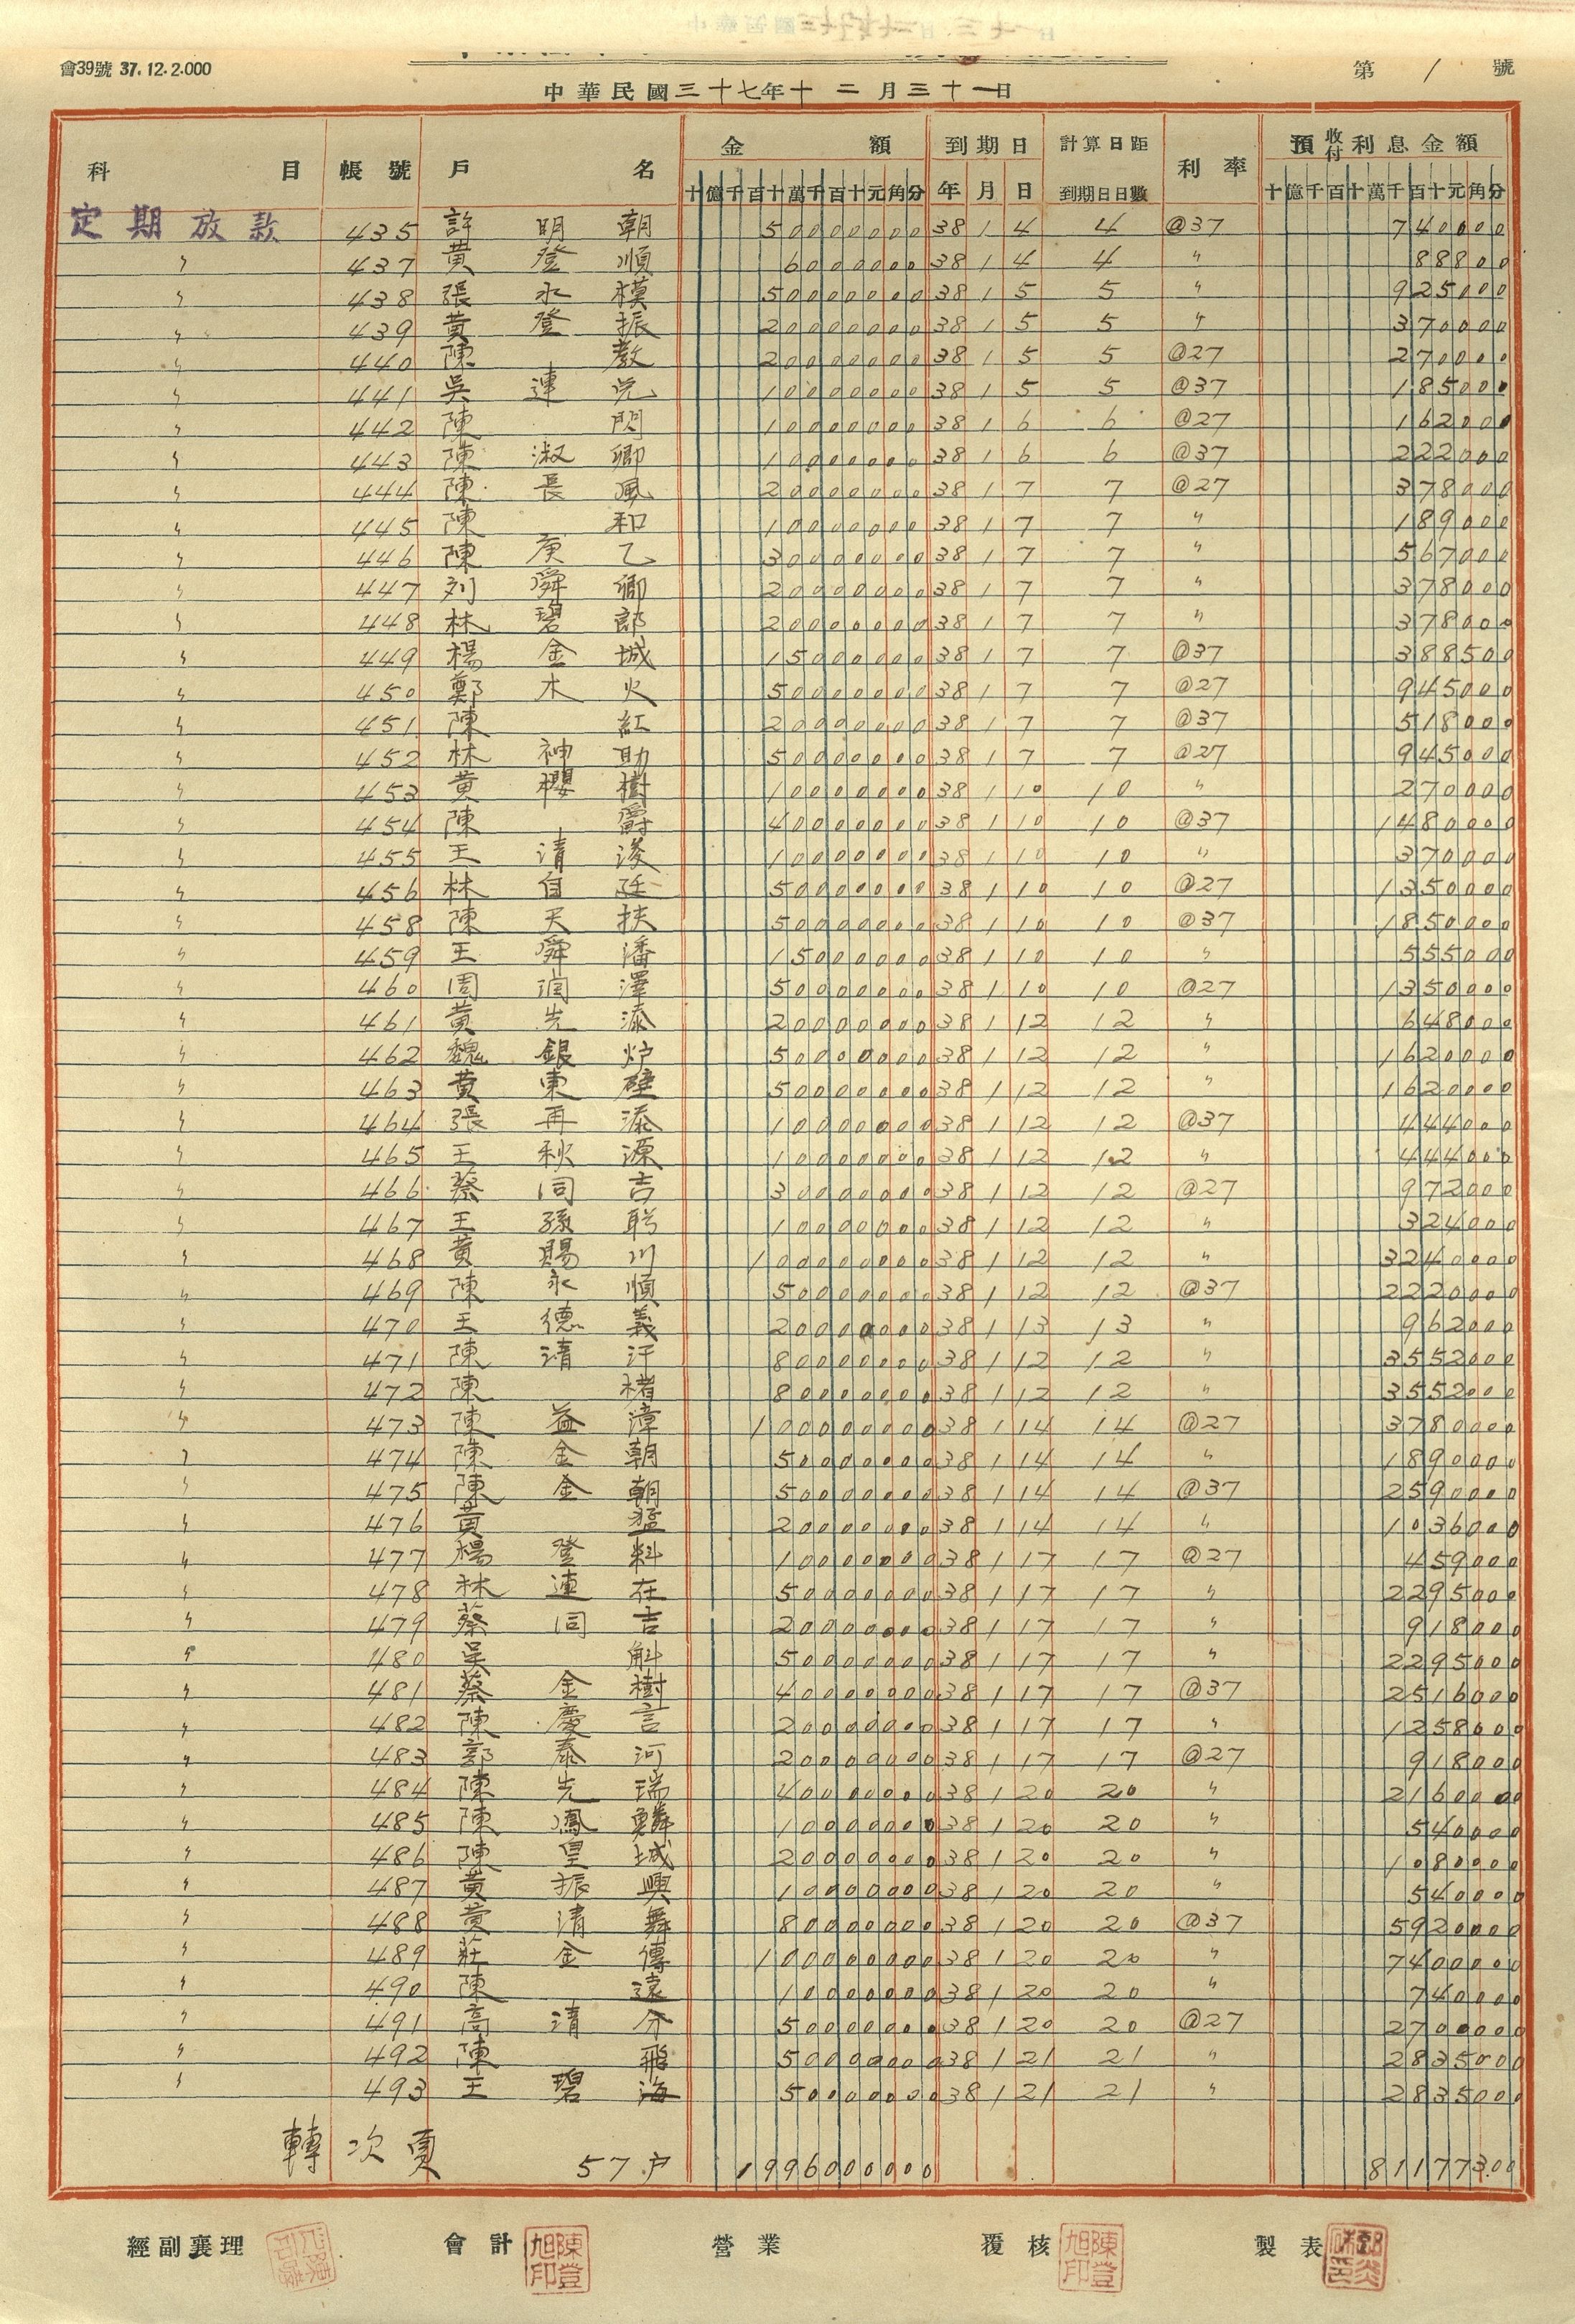 會39號 37.12.2.000
第 1 號
中華民國三十七年十二月三十一日
科目 帳號 戶名 金額 到期日 計算日距 利率 預收付利息金額
十億千百十萬千百十元角分 年 月 日 到期日日數 十億千百十萬千百十元角分
定期放款 435 許明朝 50000000 38 1 4 4 @37 740000
〃 437 黃登順 6000000 38 1 4 4 〃 88800
〃 438 張永模 50000000 38 1 5 5 〃 925000
〃 439 黃登振 20000000 38 1 5 5 〃 370000
〃 440 陳教 20000000 38 1 5 5 @27 270000
〃 441 吳連兇 10000000 38 1 5 5 @37 185000
〃 442 陳閃 10000000 38 1 6 6 @27 162000
〃 443 陳淑卿 10000000 38 1 6 6 @37 222000
〃 444 陳長風 20000000 38 1 7 7 @27 378000
〃 445 陳和 10000000 38 1 7 7 〃 189000
〃 446 陳庚乙 30000000 38 1 7 7 〃 567000
〃 447 刘舜卿 20000000 38 1 7 7 〃 378000
〃 448 林碧郎 20000000 38 1 7 7 〃 378000
〃 449 楊金城 15000000 38 1 7 7 @37 388500
〃 450 鄭木火 50000000 38 1 7 7 @27 945000
〃 451 陳紅 20000000 38 1 7 7 @37 518000
〃 452 林神助 50000000 38 1 7 7 @27 945000
〃 453 黃櫻樹 10000000 38 1 10 10 〃 270000
〃 454 陳爵 40000000 38 1 10 10 @37 1480000
〃 455 王清浚 10000000 38 1 10 10 〃 370000
〃 456 林自廷 50000000 38 1 10 10 @27 1350000
〃 458 陳天扶 50000000 38 1 10 10 @37 1850000
〃 459 王舜潘 15000000 38 1 10 10 〃 555000
〃 460 周润澤 50000000 38 1 10 10 @27 1350000
〃 461 黃先添 20000000 38 1 12 12 〃 648000
〃 462 魏銀炉 50000000 38 1 12 12 〃 1620000
〃 463 黃東壁 50000000 38 1 12 12 〃 1620000
〃 464 張再添 10000000 38 1 12 12 @37 444000
〃 465 王秋源 10000000 38 1 12 12 〃 444000
〃 466 蔡同吉 30000000 38 1 12 12 @27 972000
〃 467 王孫聘 10000000 38 1 12 12 〃 324000
〃 468 黃賜川 100000000 38 1 12 12 〃 3240000
〃 469 陳永順 50000000 38 1 12 12 @37 2220000
〃 470 王德義 20000000 38 1 13 13 〃 962000
〃 471 陳清汗 80000000 38 1 12 12 〃 3552000
〃 472 陳楮 80000000 38 1 12 12 〃 3552000
〃 473 陳益漳 100000000 38 1 14 14 @27 3780000
〃 474 陳金朝 50000000 38 1 14 14 〃 1890000
〃 475 陳金朝 50000000 38 1 14 14 @37 2590000
〃 476 黃猛 20000000 38 1 14 14 〃 1036000
〃 477 楊登科 10000000 38 1 17 17 @27 459000
〃 478 林連在 50000000 38 1 17 17 〃 2295000
〃 479 蔡同吉 20000000 38 1 17 17 〃 918000
〃 480 吳斛 50000000 38 1 17 17 〃 2295000
〃 481 蔡金樹 40000000 38 1 17 17 @37 2516000
〃 482 陳慶言 20000000 38 1 17 17 〃 1258000
〃 483 郭泰河 20000000 38 1 17 17 @27 918000
〃 484 陳先瑞 40000000 38 1 20 20 〃 2160000
〃 485 陳鳳麟 10000000 38 1 20 20 〃 540000
〃 486 陳皇城 20000000 38 1 20 20 〃 1080000
〃 487 黃振興 10000000 38 1 20 20 〃 540000
〃 488 黃清舞 80000000 38 1 20 20 @37 5920000
〃 489 莊金傳 100000000 38 1 20 20 〃 7400000
〃 490 陳遠 10000000 38 1 20 20 〃 740000
〃 491 高清分 50000000 38 1 20 20 @27 2700000
〃 492 陳飛 50000000 38 1 21 21 〃 2835000
〃 493 王碧海 50000000 38 1 21 21 〃 2835000
轉次頁 57戶 1996000000 81177300
經副襄理 會計 陳登旭印 營業 覆核 陳登旭印 製表